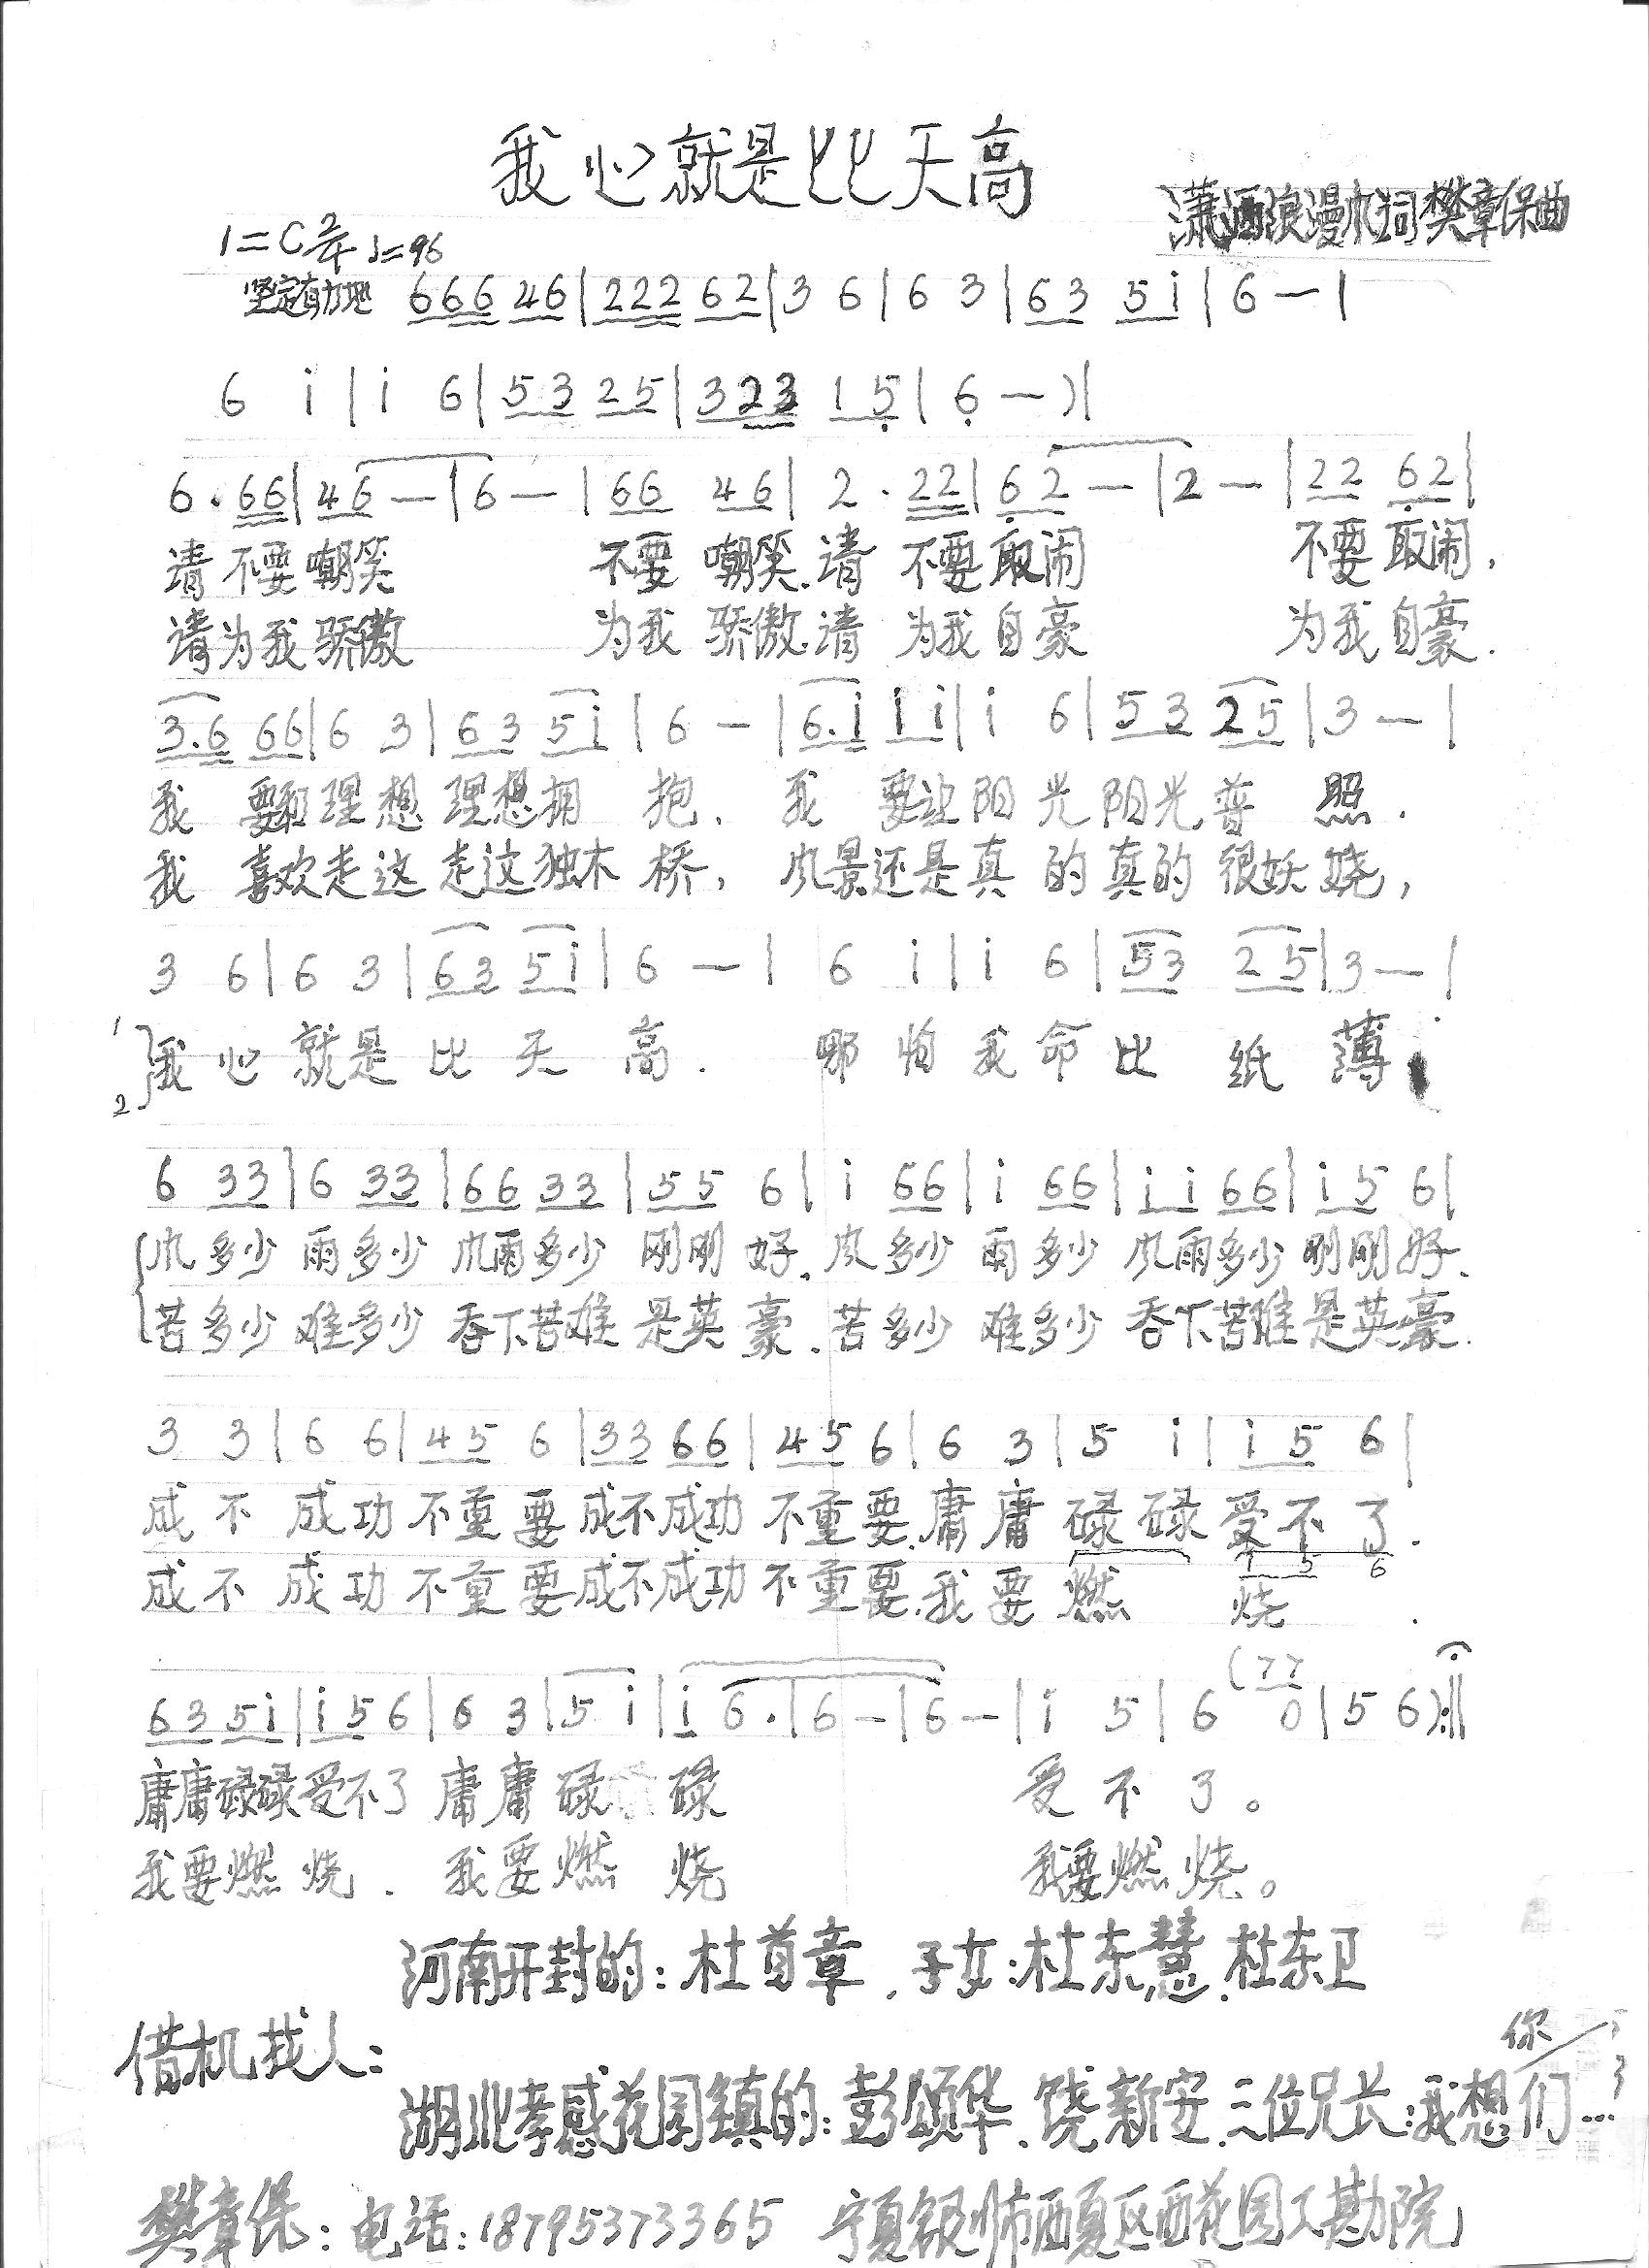 我心就是比天高
潇洒浪漫 词 樊章保曲
1=C 2/4 ♩=96
坚定有力地 666 46|222 62|3 6|6 3|63 5i|6 — |
6 i|i 6|53 25|323 1 5|6 — )|
6. 66|46 — |6 — |66 46|2. 22|62 — |2 — |22 62|
请不要嘲笑 不要嘲笑.请不要取闹 不要取闹,
请为我骄傲 为我骄傲.请为我自豪 为我自豪.
3.6 66|6 3|63 5i|6 — |6.i i i|i 6|53 25|3 — |
我 要和理想理想拥抱. 我 要让阳光阳光普照.
我 喜欢走这走这独木桥, 风景还是真的真的很妖娆,
3 6|6 3|63 5i|6 — |6 i|i 6|53 25|3 — |
1 2 我心就是比天高. 哪怕我命比纸薄
6 33|6 33|66 33|55 6|i 66|i 66|i i 66|i 5 6|
风多少 雨多少 风雨多少 刚刚好.风多少 雨多少 风雨多少 刚刚好.
苦多少 难多少 吞下苦难 是英豪.苦多少 难多少 吞下苦难是英豪.
3 3|6 6|45 6|33 66|45 6|6 3|5 i|i 5 6|
成不成功不重要成不成功不重要.庸庸碌碌受不了.
1 5 6
成不成功不重要成不成功不重要.我要燃 烧.
(77
63 5i|i 5 6|6 3|5 i|i 6.|6 — |6 — |i 5|6 0|5 6):||
庸庸碌碌受不了庸庸碌 碌 受不了。
我要燃烧. 我要燃 烧 我要燃烧。
河南开封的:杜首章.子女:杜东慧.杜东卫
借机找人:
湖北孝感花园镇的:彭颂华.饶新安.三位兄长:我想你们...
樊章保:电话:18795373365 宁夏银川市西夏区西花园工勘院